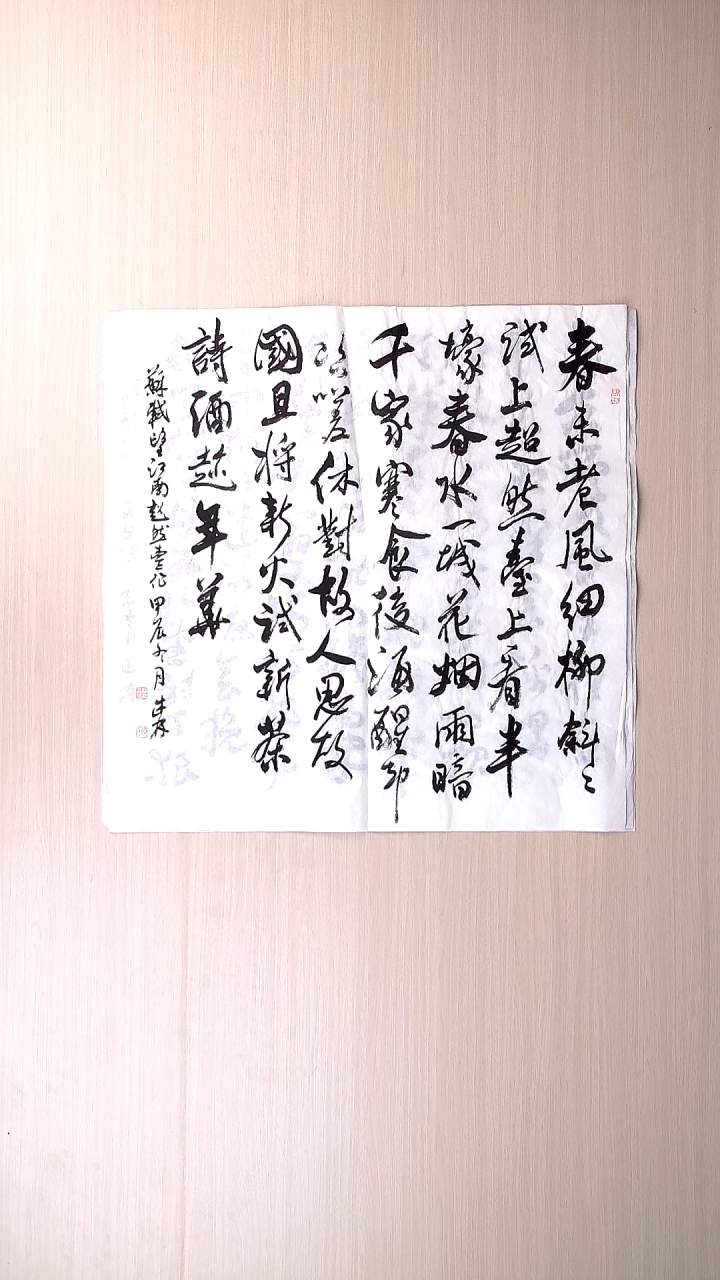 春未老風細柳斜〻
試上超然臺上看半
壕春水一城花烟雨暗
千家寒食後酒醒却
咨嗟休對故人思故
國且將新火試新茶
詩酒趁年華
蘇軾望江南超然臺作甲辰冬月